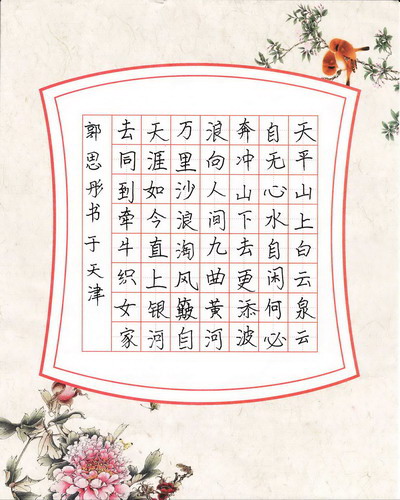 天平山上白云泉云
自无心水自闲何必
奔冲山下去更添波
浪向人间九曲黄河
万里沙浪淘风簸自
天涯如今直上银河
去同到牵牛织女家
郭思彤书于天津